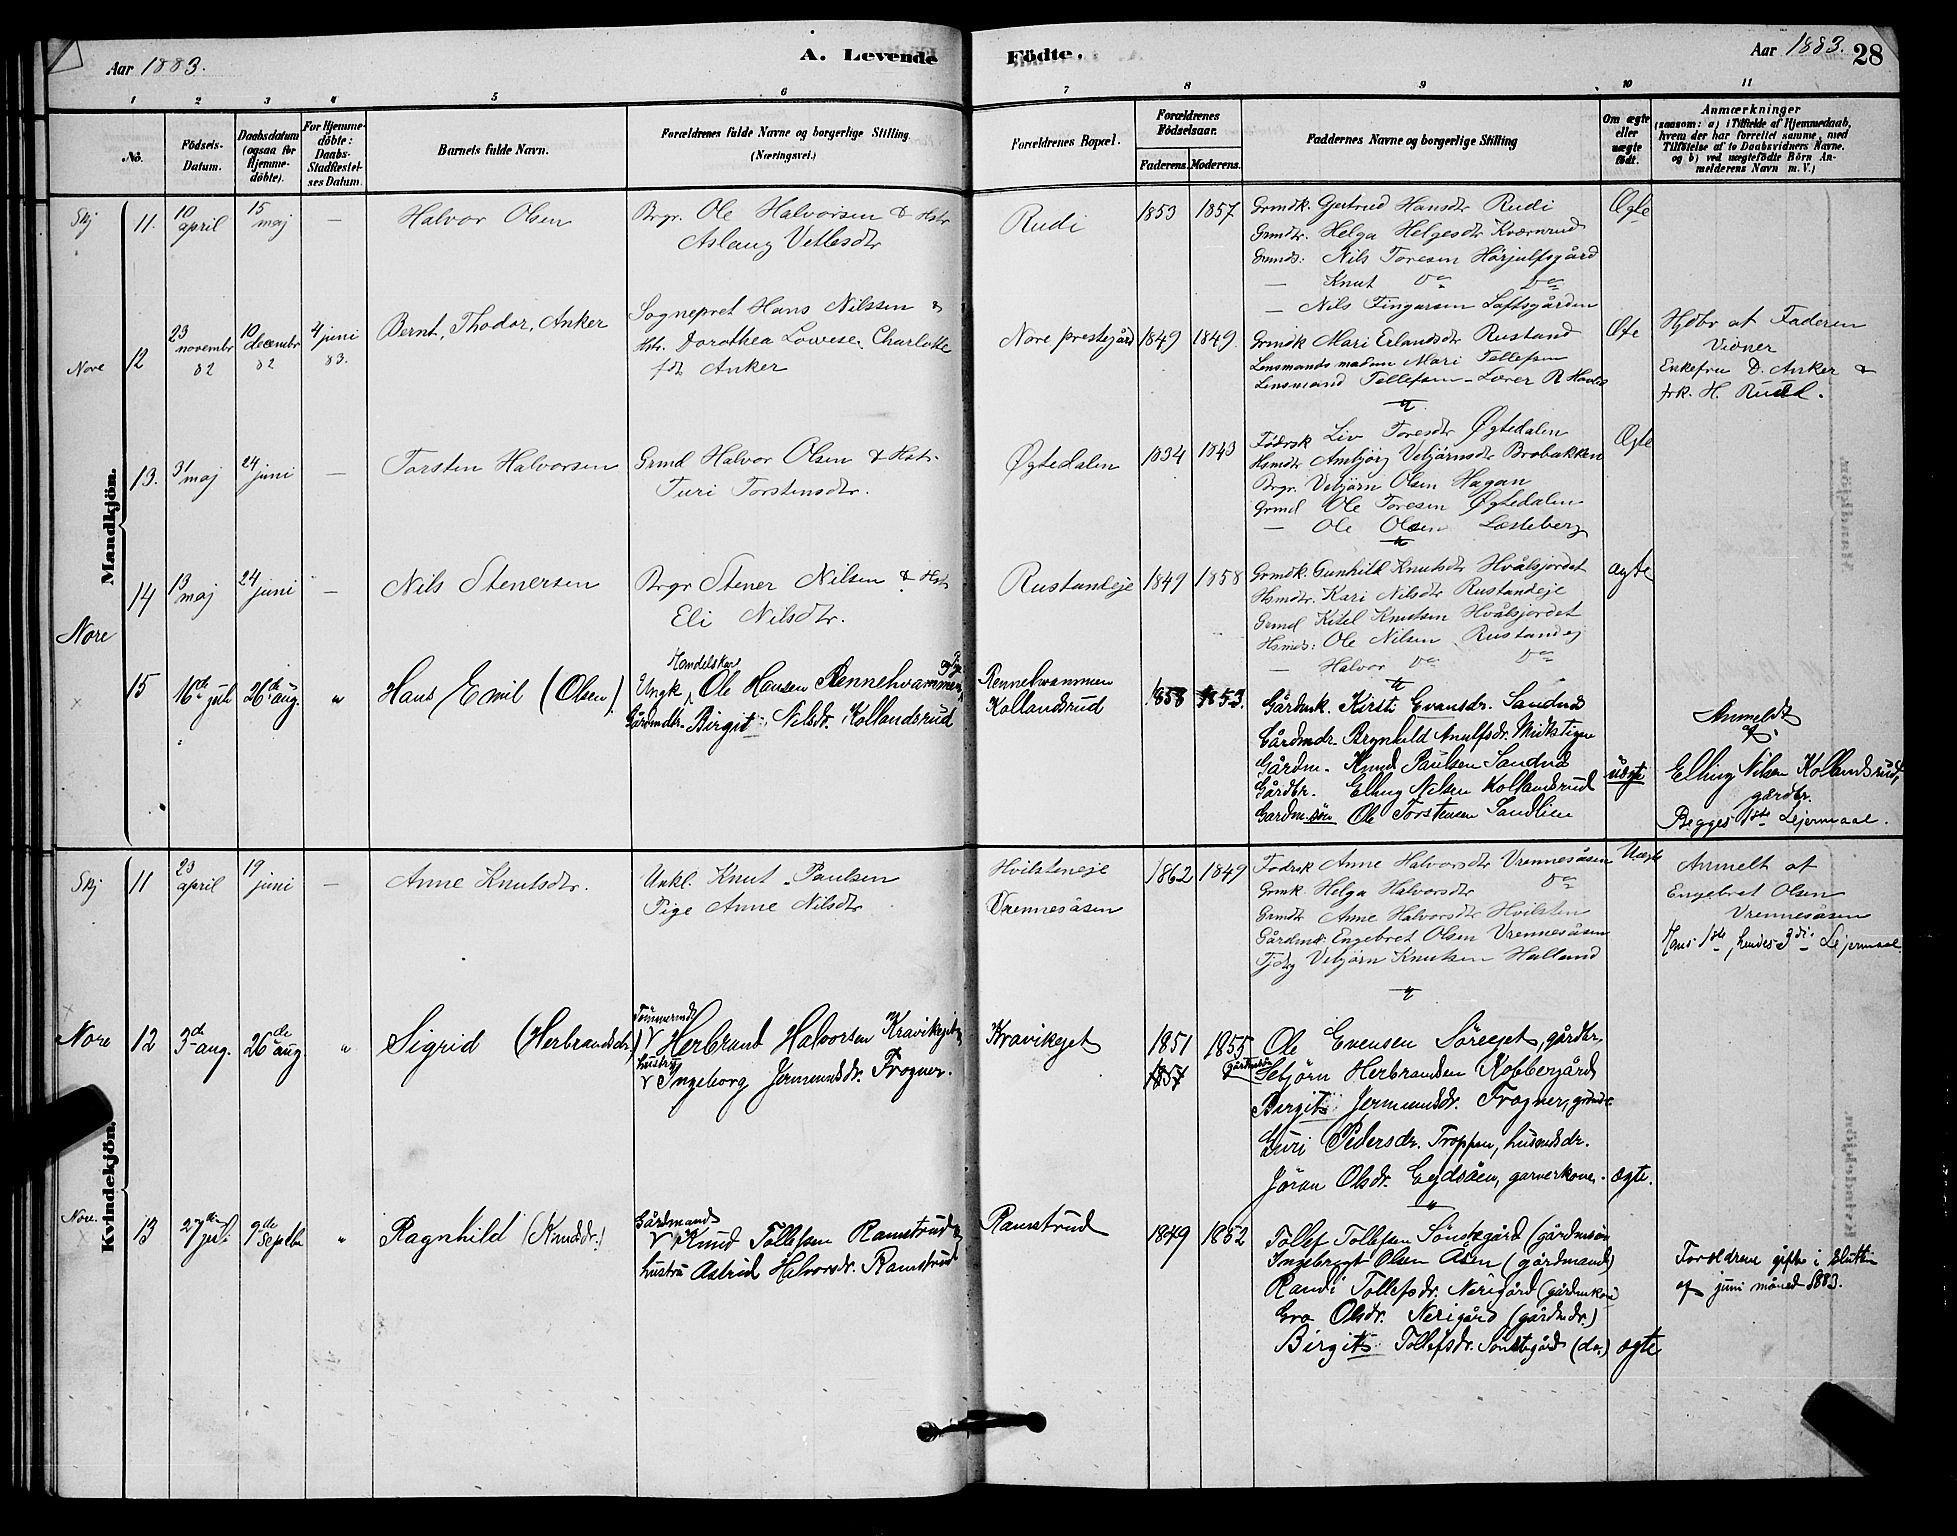 Aar 1883.
A. Levende Födte.
Aar 1883. 28
1 2 3 4 5 6 7 8 9 10 11
No.
Födsels-Datum.
Daabsdatum (ogsaa for Hjemme-döbte).
For Hjemme-döbte: Daabs-Stadfæstel-ses Datum.
Barnets fulde Navn.
Forældrenes fulde Navne og borgerlige Stilling (Næringsvei.)
Forældrenes Bopæl.
Forældrenes Födselsaar.
Faderens. Moderens.
Faddernes Navne og borgerlige Stilling
Om ægte eller uægte födt.
Anmærkninger
(saasom: a) i Tilfælde af Hjemmedaab, hvem der har forrettet samme, med Tilföielse af to Daabsvidners Navne. og b) ved uægtefödte Börn An-melderens Navn m. V.)
Mandkjön.
Skj 11. 10 april 15 maj — Halvor Olsen
Brgr. Ole Halvorsen & Hstr
Aslaug Vetlesdtr
Rudi 1853 1857
Grmdk. Gjertrud Hansdtr Rudi
Grmdtr. Helga Helgesdtr Kværnrud
Grmds: Nils Toresen Hørjulfsgård
— Knut do do
— Nils Fingarsen Loftsgården
Ægte
Nore 12 23 novembr 82 10 decembr 82 4 juni 83. Bernt, Thodor, Anker
Sognepret Hans Nilssen &
Hstr. Dorothea Lowese Charlotte
fdt Anker
Nore prestegård 1849 1849
Grmdk Mari Erlandsdtr Rustand
Lensmandsmadam Mari Tollefsen
Lensmand Tollefsen - Lærer R
Hjdbr af Faderen
Vidner
Enkefru D. Anker &
frk. H. Rudd.
13. 31 maj 24 juni — Torsten Halvorsen
Grmd Halvor Olsen & Hstr.
Turi Torstensdtr.
Øgtedalen 1834 1843
Fødrsk Liv Toresdtr Øgtedalen
Hsmdtr Ambjørg Vebjørnsdtr Brobakken
Brgr. Vebjørn Olsen Hagan
Grmd Ole Toresen Øgtedalen
— Ole Olsen Læsteberg
Ægte
Nore
14 13 maj 24 juni — Nils Stenersen
Brgr Stener Nilsen & Hstr
Eli Nilsdtr.
Rustandeje 1849 1858
Grmdk. Gunhild Knutsdtr Hvålsjordet
Hsmdtr. Kari Nilsdtr Rustandeje
Grmd Kitel Knutsen Hvålsjordet
Hsmds: Ole Nilsen Rustandej
— Halvor do do
ægte
15 16de juli 26de aug. " Hans Emil (Olsen)
Ungk Handelskar Ole Hansen Rennehvammen og Pige
Gårdmdtr. Birgit Nilsdr. Kollandsrud
Rennehvammen
Kollandsrud
1858 1853.
Gårdmk. Kirsti Evansdr. Sandnes
Gårdmdr. Brynhild Anulfsdr. Mickstigen
Gårdm. Knud Paulsen Sandnes
Gårdbr. Elling Nilsen Kollandsrud
Gardm.søn Ole Torstensen Sandlien
uægt
Anmeldt
af
Elling Nilsen Kollandsrud,
gårdbr.
Begges 1ste Lejermaal.
Kvindekjön.
Skj 11 23 april 19 juni — Anne Knutsdtr.
Unkl. Knut Paulsen
Pige Anne Nilsdtr
Hvilsteneje
Vrennesåsen
1862 1849
Fodrsk Anne Halvorsdtr Vrennesåsen
Grmk. Helga Halvorsdtr do
Grmdtr Anne Halvorsdtr Hvilsten
Gårdmd. Engebret Olsen Vrennesåsen
Tjdrg Vebjørn Knutsen Halland
Uægte
Anmelt af
Engebret Olsen
Vrennesåsen
Hans 1ste, hendes 3die Lejermaal
Nore 12 3de aug. 26de aug " Sigrid (Herbrandsdr.)
Tømmermd Herbrand Halvorsen Kravikejet
hustru Ingeborg Jermundsdr. Frogner.
Kravikejet 1851 1855
1857
Ole Evensen Søreejet, gårdbr,
gårdmsøn Sebjörn Herbrandsen Kobbergård
Birgit Jermundsdr. Frogner,
Guri Pedersdr. Troppen, husmdsdr.
Jöran Olsdr. Eydsåen, garverkone. ægte.
Nore. 13 27de juli 9de Septbr " Ragnhild (Knudsdr.)
Gårdmand Knud Tollefsen Ramstrud &
hustru Astrid Halvorsdr. Ramstrud
Ramstrud 1849 1852
Tollef Tollefsen Sönstegård (gårdmsön
Ingebregt Olsen Åsen (gårdmand)
Randi Tollefsdr. Nerigård (gårdmkone
Gro Olsdr. Nerigård (gårdmdr.)
Birgit Tollefsdr. Sönstegård (do.) ægte
Foreldrene gifte i slutten
af juni måned 1883.